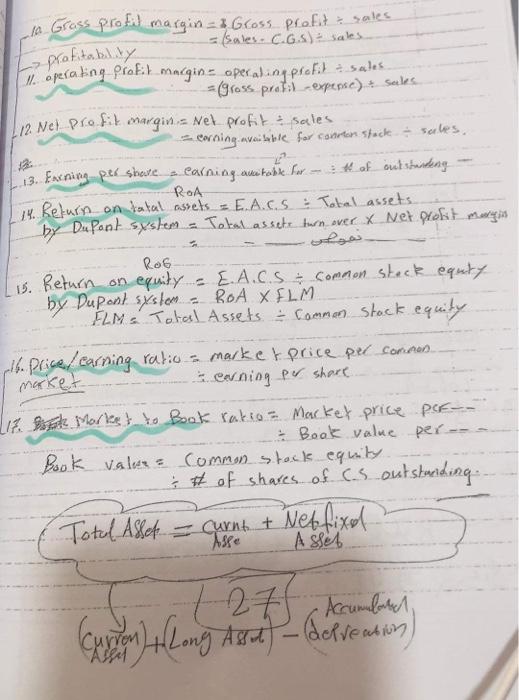 10. Gross profit margin = Gross profit ÷ sales
= (sales - C.G.S) ÷ sales
→ profitability
11. operating profit margin = operating profit ÷ sales
= (gross profit - expense) ÷ sales
12. Net profit margin = Net profit ÷ sales
= earning available for common stock ÷ sales.
13. Earning per share = earning available for — ÷ # of outstanding —
RoA
14. Return on total assets = E.A.C.S ÷ Total assets
by DuPont system = Total assets turn over X Net profit margin
= — —
RoE
15. Return on equity = E.A.C.S ÷ common stock equity
by Dupont system = RoA X FLM
FLM = Total Assets ÷ Common stock equity
16. Price/earning ratio = market price per common
market
÷ earning per share
17. Market to Book ratio = Market price per ---
÷ Book value per ---
Book value = Common stock equity
÷ # of shares of C.S outstanding.
Total Asset = Curnt Asse + Net fixed Asset
27
(Curren Asset) + (Long Asset) - (Accumulated